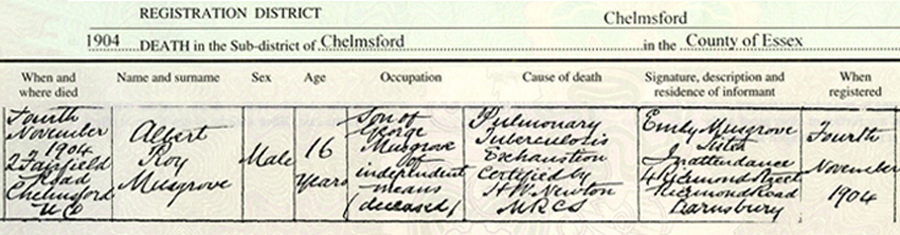 REGISTRATION DISTRICT Chelmsford
1904 DEATH in the Sub-district of Chelmsford in the County of Essex
When and where died
Name and surname
Sex
Age
Occupation
Cause of death
Signature, description and residence of informant
When registered
Fourth
November
1904
2 Fairfield
Road
Chelmsford
U C
Albert
Roy
Musgrove
Male
16
Years
Son of
George
Musgrove
of
independent
means
(deceased)
Pulmonary
Tuberculosis
Exhaustion
Certified by
H W Newton
MRCS
Emily Musgrove
Sister
In attendance
4 Richmond Street
Richmond Road
Barnsbury
Fourth
November
1904